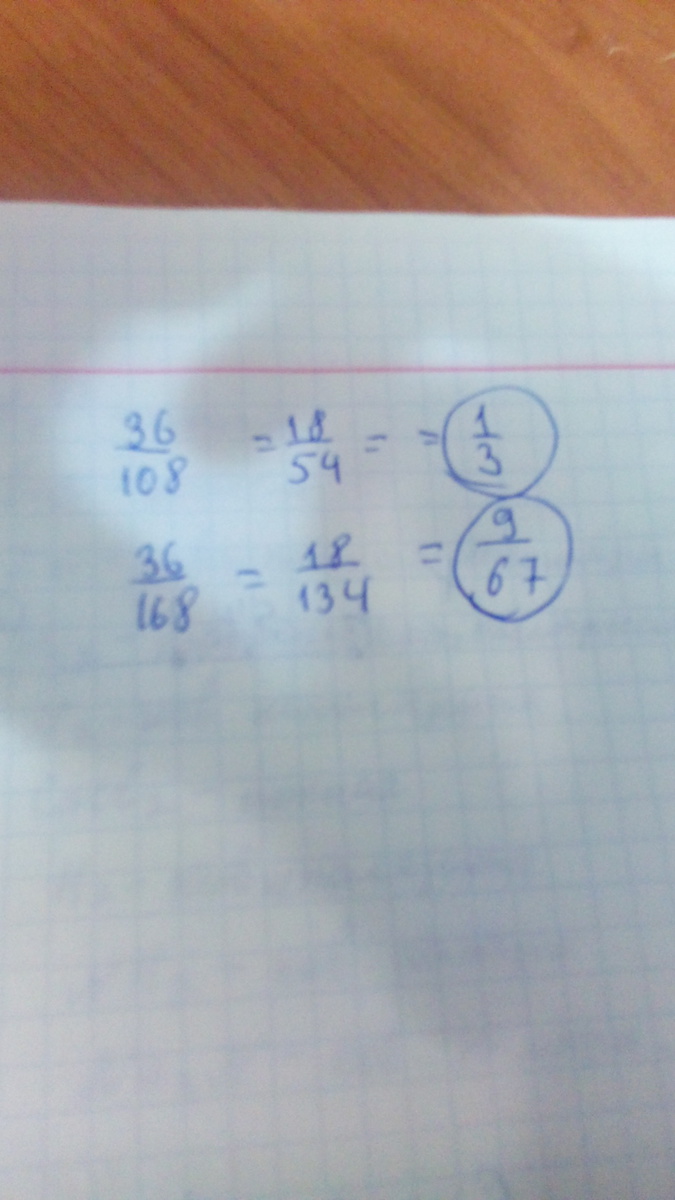 36/108 = 18/54 = = 1/3
36/168 = 18/134 = 9/67